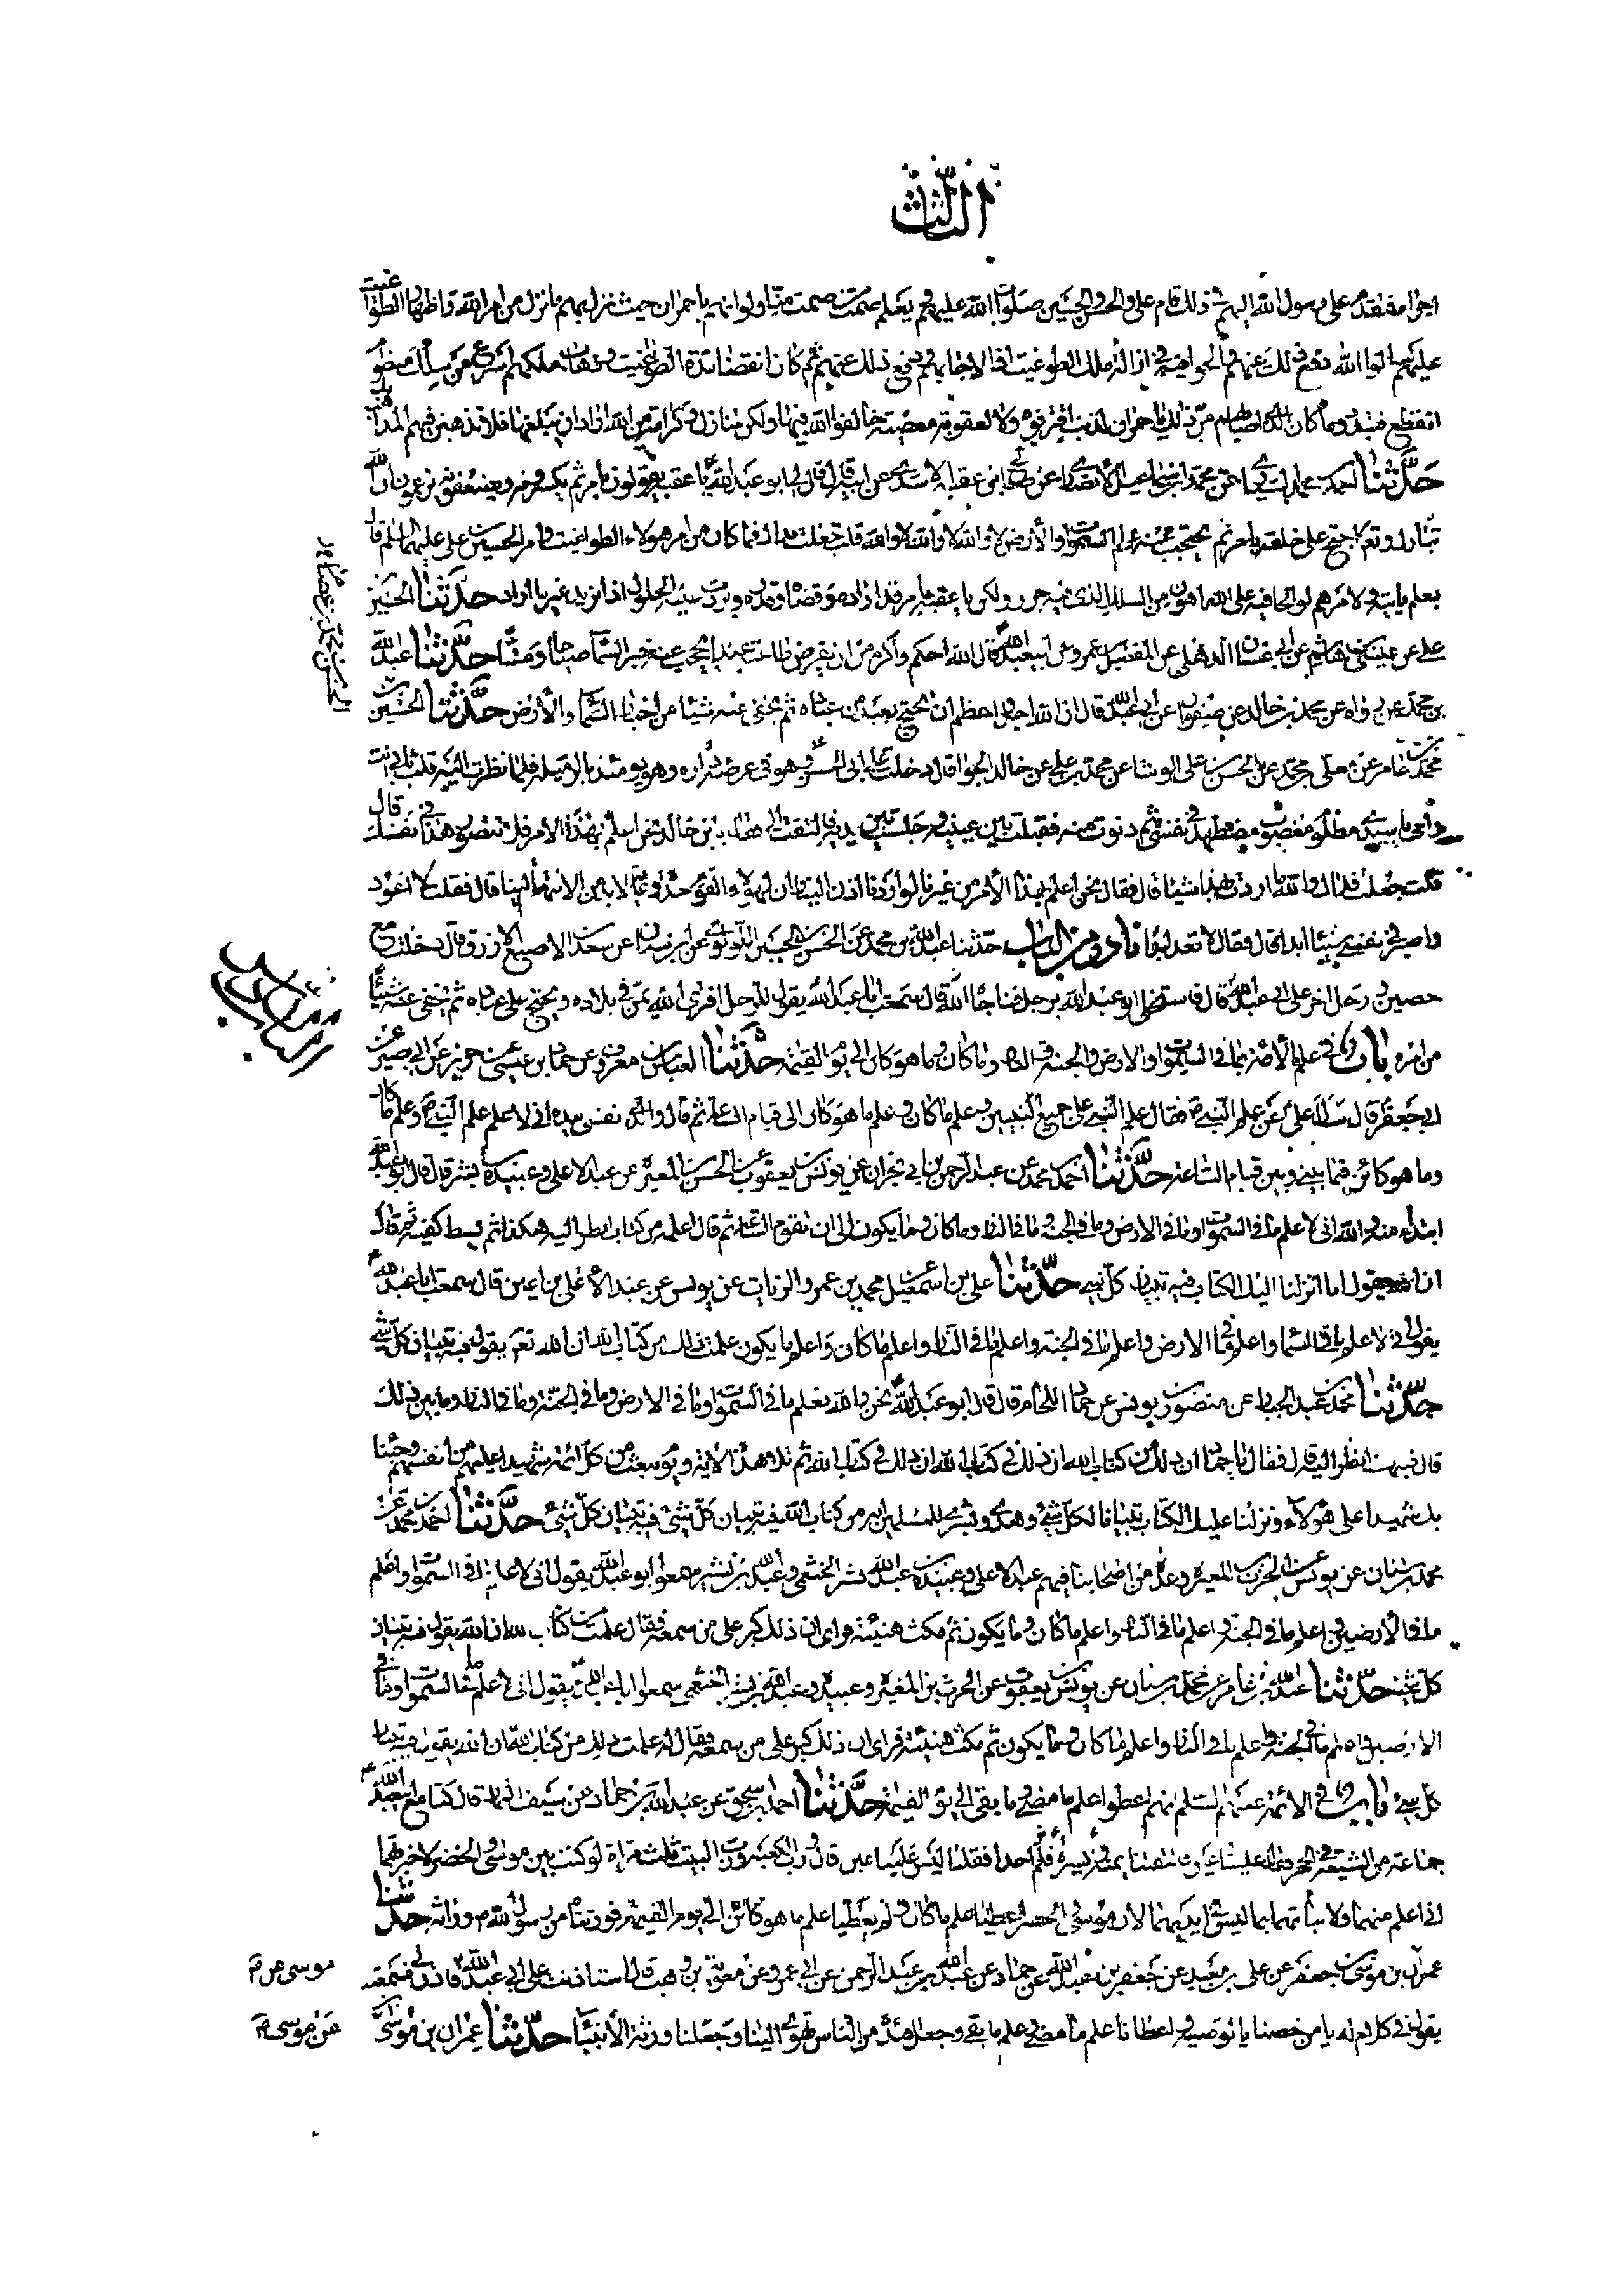 الثالث
اجراه فتقدم على رسول الله اليهم في ذلك قام على والحسن والحسين صلوات الله عليهم وبعلم صمت من صمت منا ولو انهم يا حمران حيث نزل بهم ما نزل من امر الله واظهار الطواغيت
عليهم سالوا الله دفع ذلك عنهم والحوا فيه في ازالة ملك الطواغيت اذا لاجابهم ودفع ذلك عنهم ثم كان انقضاء مدة الطواغيت وذهاب ملكهم اسرع من سلك منظوم
انقطع فتبدد وما كان الذي اصابهم من ذلك يا حمران لذنب اقترفوه ولا لعقوبة معصية خالفوا الله فيها ولكن لمنازل وكرامة من الله اراد ان يبلغها فلا تذهبن فيهم المذاهب
حدثنا احمد بن محمد عن محمد بن اسمعيل الانصاري عن صالح ابن عقبة الاسدي عن ابيه قال قال لي ابو عبد الله يا عقبة يقولون بامر ثم يكسرونه ويضعفونه يزعمون ان الله
تبارك وتعالى احتج على خلقه برجل ثم يحتجب عنه علم السموات والارض لا والله لا والله لا والله قلت جعلت فداك فما كان من امر هؤلاء الطواغيت وامر الحسين بن علي عليهما السلم قال
حدثنا الحسين
علي عن عبيس بن هاشم عن ابي غسان الذهلي عن المفضل بن عمر عن ابي عبد الله قال الله احكم واكرم من ان يفرض طاعة عبد يحجب عنه خبر السماء صباحا ومساء حدثنا عبد الله
بن محمد عمن رواه عن محمد بن خالد عن صفوان عن ابي عبد الله قال ان الله اجل واعظم ان يحتج بعبد من عباده ثم يخفي عنه شيئا من اخبار السماء والارض حدثنا الحسين
بن محمد بن عامر عن معلى بن محمد عن الحسن بن علي الوشا عن محمد بن علي عن خالد الجواز قال دخلت على ابي الحسن وهو في عرصة داره وهو يومئذ بالرميلة فلما نظرت اليه قلت بابي انت
وامي يا سيدي مظلوم مغصوب مضطهد في نفسي ثم دنوت منه فقبلت بين عينيه وجلست بين يديه فالتفت الي فقال يا بن خالد نحن اعلم بهذا الامر فلا تتصور هذا في نفسك قال
قلت جعلت فداك والله ما اردت بهذا شيئا قال فقال نحن اعلم بهذا الامر من غيرنا لو اردنا اذن الينا وان لهؤلاء القوم مدة وغاية لا بد من الانتهاء اليها قال فقلت لا اعود
واصير في نفسي شيئا ابدا قال فقال لا تعد ابدا نادر من الباب حدثنا عبد الله بن محمد عن الحسن بن الحسين اللؤلؤي عن ابن سنان عن سعد بن الاصبغ الازرق قال دخلت مع
حصين ورجل اخر على ابي عبد الله قال فاستخلى ابو عبد الله برجل فناجاه ما شاء الله قال سمعت ابا عبد الله يقول للرجل افترى الله يمن في بلاده ويحتج على عباده ثم يخفي عنه شيئا
من امره باب في علم الائمة بما في السموات والارض والجنة والنار وما كان وما هو كائن الى يوم القيمة حدثنا العباس بن معروف عن حماد بن عيسى عن حريز عن ابي بصير عن
ابي جعفر قال سئل علي عن علم النبي ص فقال علم النبي علم جميع النبيين وعلم ما كان وعلم ما هو كائن الى قيام الساعة ثم قال والذي نفسي بيده اني لاعلم علم النبي ص وعلم ما كان
وما هو كائن فيما بيني وبين قيام الساعة حدثنا احمد بن محمد عن عبد الرحمن بن ابي نجران عن يونس بن يعقوب عن الحسن بن المغيرة عن عبد الاعلى وعبيدة بن بشر قال قال ابو عبد الله
ابتداء منه والله اني لاعلم ما في السموات وما في الارض وما في الجنة وما في النار وما كان وما يكون الى ان تقوم الساعة ثم قال اعلمه من كتاب انظر اليه هكذا ثم بسط كفيه ثم قال
ان الله يقول انا انزلنا اليك الكتاب فيه تبيان كل شيء حدثنا علي بن اسمعيل عن محمد بن عمرو الزيات عن يونس عن عبد الاعلى بن اعين قال سمعت ابا عبد الله
يقول اني لاعلم ما في السماء واعلم ما في الارض واعلم ما في الجنة واعلم ما في النار واعلم ما كان واعلم ما يكون علمت ذلك من كتاب الله ان الله تعالى يقول فيه تبيان كل شيء
حدثنا محمد بن عبد الجبار عن منصور بن يونس عن حماد اللحام قال قال ابو عبد الله نحن والله نعلم ما في السموات وما في الارض وما في الجنة وما في النار وما بين ذلك
قال فبهت انظر اليه قال فقال يا حماد ان ذلك من كتاب الله ان ذلك في كتاب الله ان ذلك في كتاب الله ثم تلا هذه الاية ويوم نبعث من كل امة شهيدا عليهم من انفسهم وجئنا
بك شهيدا على هؤلاء ونزلنا عليك الكتاب تبيانا لكل شيء وهدى وبشرى للمسلمين انه من كتاب الله فيه تبيان كل شيء فيه تبيان كل شيء حدثنا احمد بن محمد عن
محمد بن سنان عن يونس عن الحرث بن المغيرة وعدة من اصحابنا فيهم عبد الاعلى وعبيدة بن عبد الله بن بشر الخثعمي وعبد الله بن بشير سمعوا ابو عبد الله يقول اني لاعلم ما في السموات واعلم
ما في الارضين واعلم ما في الجنة واعلم ما في النار واعلم ما كان وما يكون ثم مكث هنيئة فراى ان ذلك كبر على من سمعه فقال علمت من كتاب الله ان الله يقول فيه تبيان
كل شيء حدثنا عبد الله بن عامر عن محمد بن سنان عن يونس بن يعقوب عن الحرث بن المغيرة وعبيدة وعبد الله بن بشر الخثعمي سمعوا ابا عبد الله يقول اني لاعلم ما في السموات وما في
الارضين واعلم ما في الجنة واعلم ما في النار واعلم ما كان وما يكون ثم مكث هنيئة فراى ان ذلك كبر على من سمعه فقال علمت ذلك من كتاب الله ان الله يقول فيه تبيان
كل شيء باب في الائمة عليهم السلم انهم اعطوا علم ما مضى وما بقي الى يوم القيمة حدثنا احمد بن اسحق عن عبد الله بن حماد عن سيف التمار قال كنا مع ابي عبد الله
جماعة من الشيعة في الحجر فقال علينا عين فالتفتنا يمنة ويسرة فلم نر احدا فقلنا ليس علينا عين قال ورب الكعبة ورب البيت ثلث مرات لو كنت بين موسى والخضر لاخبرتهما
اني اعلم منهما ولانباتهما بما ليس في ايديهما لان موسى والخضر اعطيا علم ما كان ولم يعطيا علم ما هو كائن الى يوم القيمة فورثناه من رسول الله ص وراثة حدثنا
عمران بن موسى بن جعفر عن علي بن معبد عن جعفر بن عبد الله عن حماد عن عبد الله بن عبد الرحمن عن ابي عمرو عن معوية بن وهب قال استاذنت على ابي عبد الله فاذن لي فسمعته
يقول في كلام له يا من خصنا بالوصية واعطانا علم ما مضى وعلم ما بقي وجعل افئدة من الناس تهوي الينا وجعلنا ورثة الانبياء حدثنا عمران بن موسى
نادر من الباب
موسى عن
عن موسى